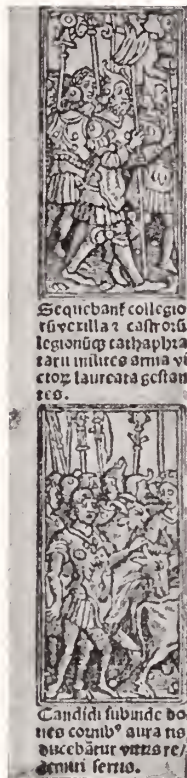 Sequebanť collegio
rū vexilla ⁊ castrorū
legionūqꝫ cathaphra
tarii milites arma vi
ctoꝝ laureata gestan
tes.
Candidi subinde bo
ues cornibꝰ auratis
ducebātur vittis re/
demiti sertis.